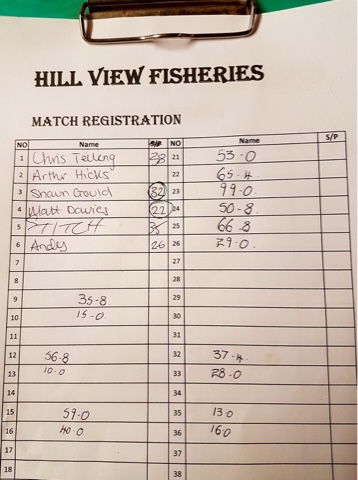 HILL VIEW FISHERIES
MATCH REGISTRATION
NO Name S/P NO Name S/P
1 Chris Telling 28 21 53-0
2 Arthur Hicks 22 65-4
3 Shaun Crould 32 23 99-0
4 Matt Davies 22 24 50-8
5 STITCH 25 66-8
6 Andy 26 26 29-0
7 27
8 28
9 35-8 29
10 15-0 30
11 31
12 56-8 32 37-4
13 10-0 33 28-0
14 34
15 59-0 35 13-0
16 40-0 36 16-0
17 37
18 38